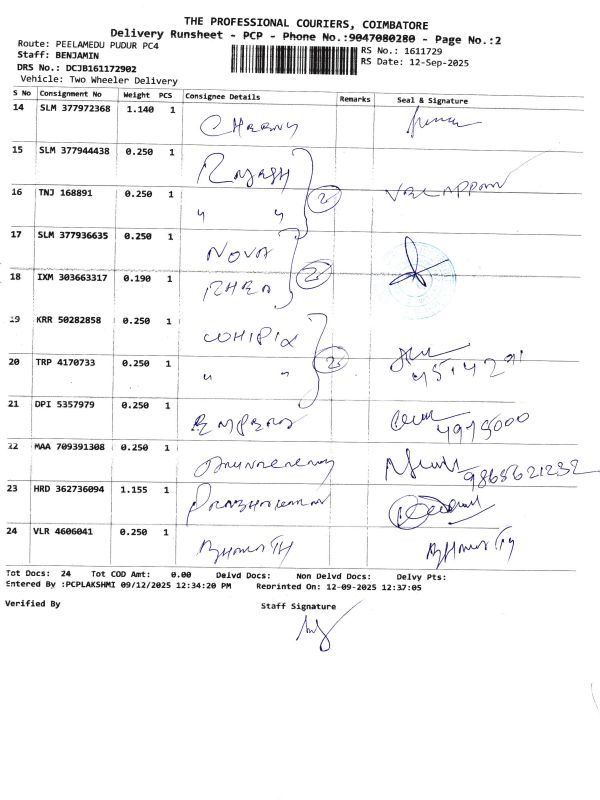 THE PROFESSIONAL COURIERS, COIMBATORE
Delivery Runsheet - PCP - Phone No.:9047080280 - Page No.:2
Route: PEELAMEDU PUDUR PC4
RS No.: 1611729
Staff: BENJAMIN
RS Date: 12-Sep-2025
DRS No.: DCJB161172902
Vehicle: Two Wheeler Delivery
S No Consignment No Weight PCS Consignee Details Remarks Seal & Signature
14 SLM 377972368 1.140 1
15 SLM 377944438 0.250 1 RAJESH 2
16 TNJ 168891 0.250 1 " " VELAPPAN
17 SLM 377936635 0.250 1 NOVA 2
18 IXM 303663317 0.190 1 RHEA
19 KRR 50282858 0.250 1 2
20 TRP 4170733 0.250 1 " "
21 DPI 5357979 0.250 1
22 MAA 709391308 0.250 1
23 HRD 362736094 1.155 1
24 VLR 4606041 0.250 1
Tot Docs: 24 Tot COD Amt: 0.00 Delvd Docs: Non Delvd Docs: Delvy Pts:
Entered By :PCPLAKSHMI 09/12/2025 12:34:20 PM Reprinted On: 12-09-2025 12:37:05
Verified By Staff Signature